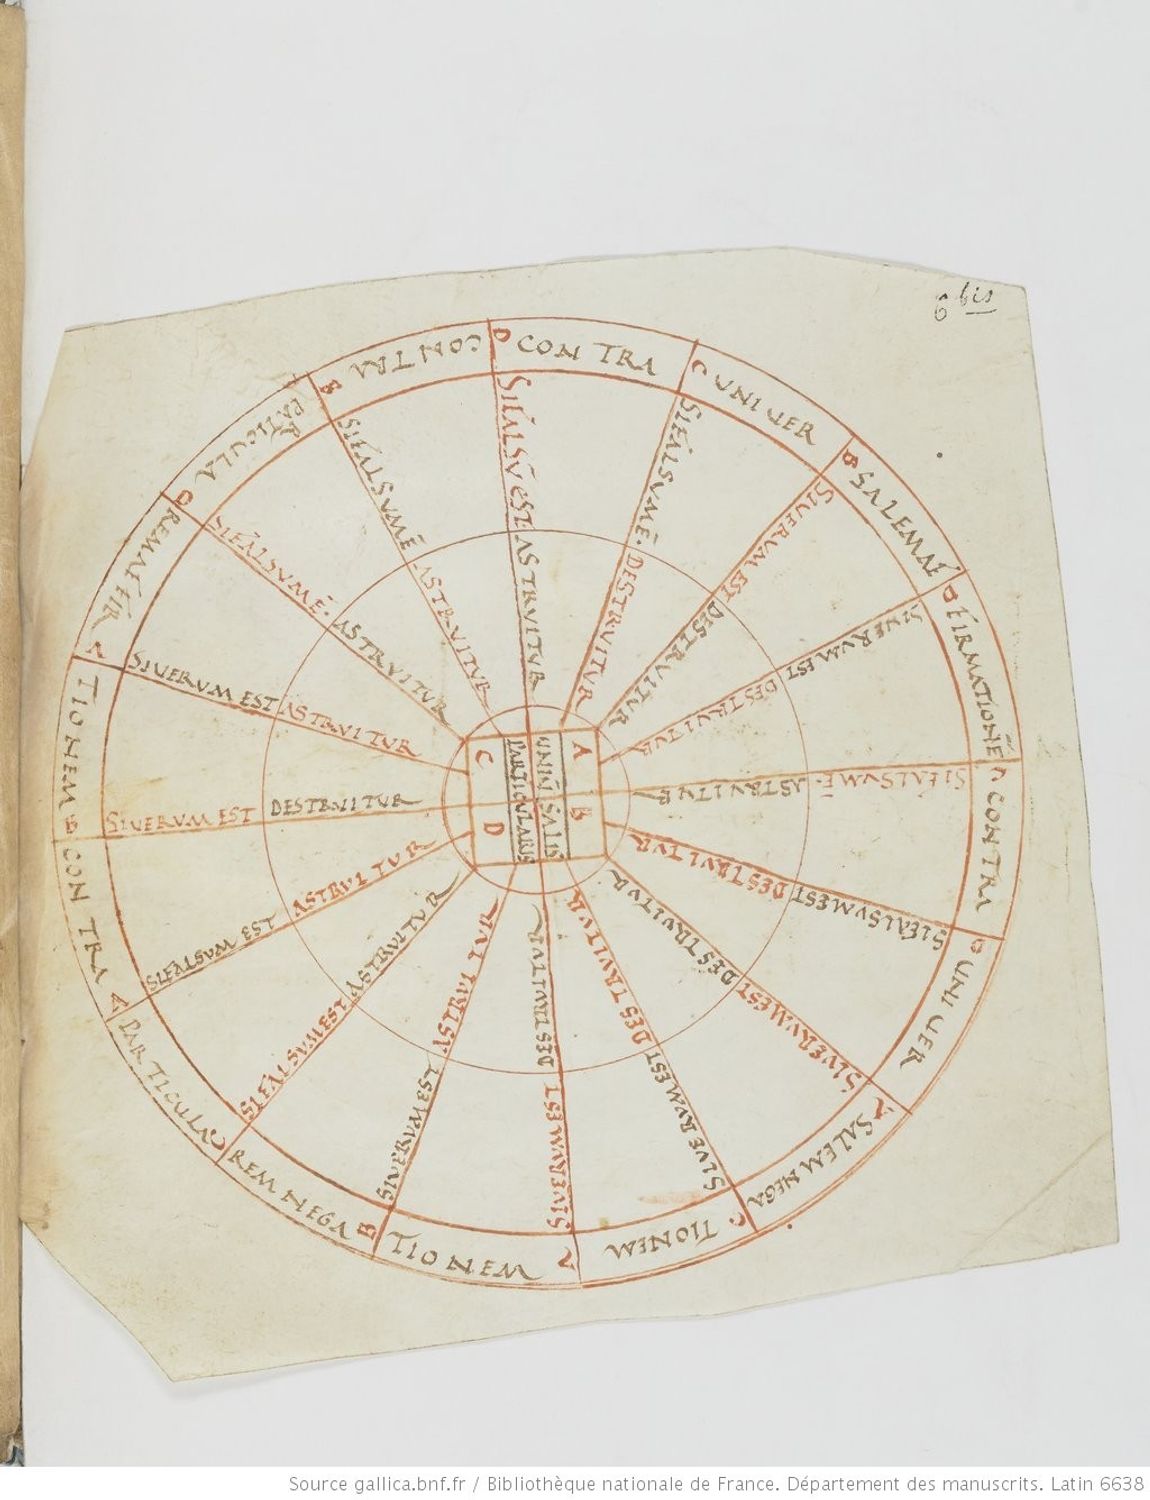 6 bis
D CONTRA
C UNIUER
B SALEMAF
D FIRMATIONE
C CONTRA
D UNIUER
A SALEMNEGA
C TIONEM
A
TIONEM
B
REMNEGA
C
PARTICULA
A
CONTRA
B
TIONEM
A
REMAFFIR
D
PATICULA
B CONTRA
SIFALSUEST ASTRUITUR
SIFALSUME. DESTRUITUR
SIUERUMEST DESTRUITUR
SIUERUMEST DESTRUITUR
SIFALSUME. ASTRUITUR
SIFALSUMEST DESTRUITUR
SIUERUMEST DESTRUITUR
SIUERUMEST DESTRUITUR
SIUERUMEST DESTRUITUR
SIUERUMEST ASTRUITUR
SIFALSUMEST ASTRUITUR
SIFALSUMEST ASTRUITUR
SIUERUMEST DESTRUITUR
SIUERUMEST ASTRUITUR
SIFALSUME. ASTRUITUR
SIFALSUME ASTRUITUR
A
B
UNIUSALIS
PARTICULARIS
C
D
Source gallica.bnf.fr / Bibliothèque nationale de France. Département des manuscrits. Latin 6638